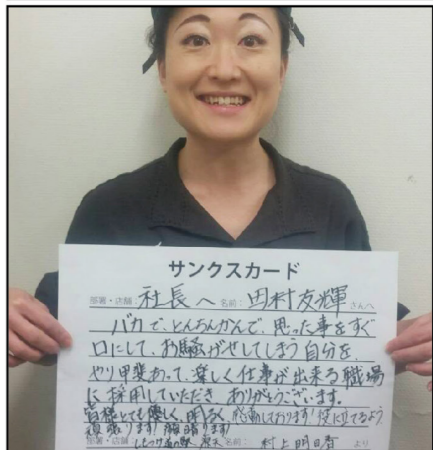 サンクスカード
部署・店舗 社長へ 名前: 田村友輝 さんへ
バカで、とんちんかんで、思った事をすぐ
口にして、お騒がせしてしまう自分を、
やり甲斐あって、楽しく仕事が出来る職場
に採用していただき、ありがとうございます。
皆様とても優しく、明るく、感動しております!役に立てるよう
頑張ります!
部署・店舗 名前: 村上明日香 より